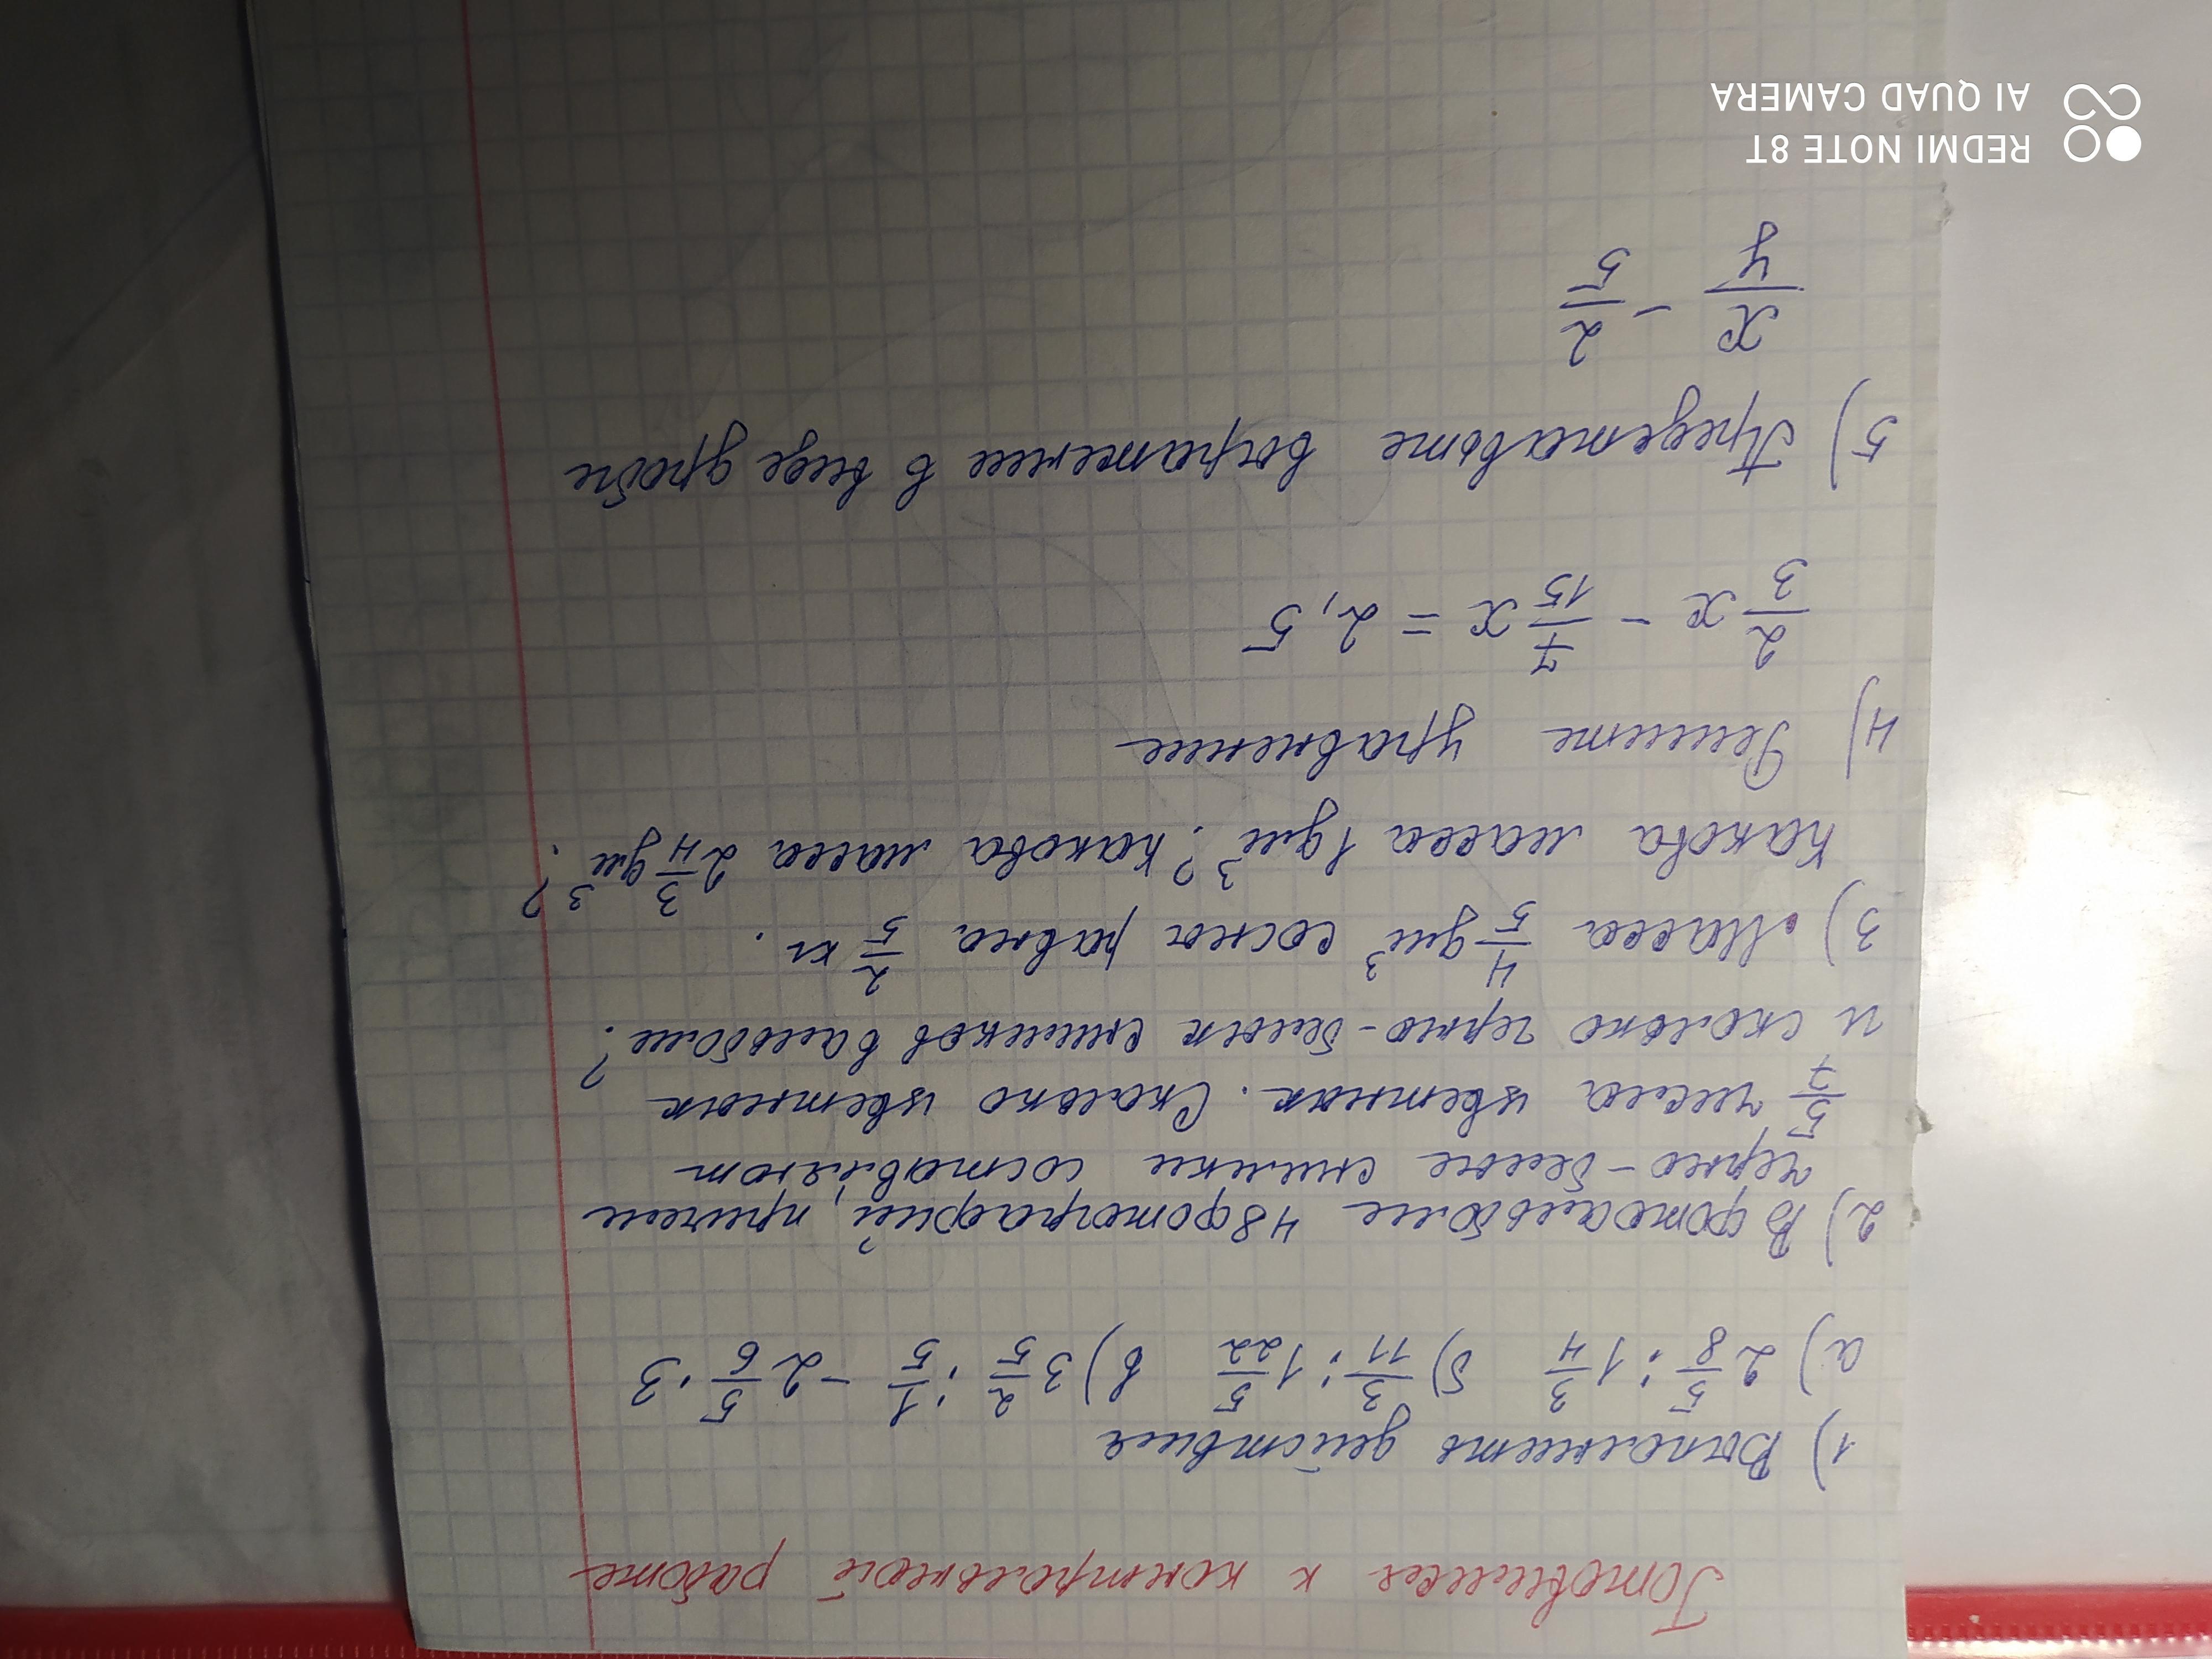 Готовимся к контрольной работе
1) Выполнить действия
а) 2 5/8 : 1 3/4 б) 3/11 : 1 5/22 в) 3 2/5 : 1/5 - 2 5/6 · 3
2) В фотоальбоме 48 фотографий, причем
черно-белые снимки составляют
5/7 числа цветных. Сколько цветных
и сколько черно-белых снимков в альбоме?
3) Масса 4/5 дм³ сосны равна 2/5 кг.
Какова масса 1дм³? Какова масса 2 3/4 дм³?
4) Решите уравнение
2/3 x - 7/15 x = 2,5
5) Представьте выражение в виде дроби
x/y - 2/5
REDMI NOTE 8T
AI QUAD CAMERA